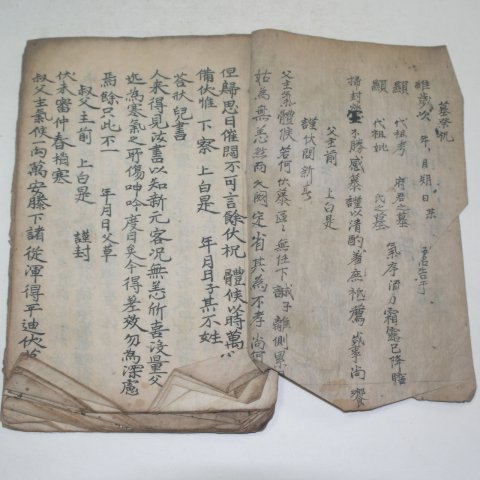 墓祭祝
維歲次 年 月朔日 某 孝子
顯 代祖考 府君之墓 氣序流易 霜露已降 瞻
顯 代祖妣 氏之墓
掃封塋 不勝感慕 謹以清酌 庶羞 祗薦 歲事 尚饗
父主前 上白是
謹伏問新春
父主氣體候若何伏慕區區無任下誠子離側累
姑爲無恙然而久闕定省其爲不孝尚何
但歸思日催闊不可言餘伏祝 體候以時萬
備伏惟 下察 上白是 年月日子某不姓
答狀兒書
人來得見汝書以知新元客況無恙所喜沒量父
近爲寒氣之所傷呻吟度日矣今得差效勿爲深慮
焉餘只此不一 年月日父草
叔父主前 上白是 謹封
伏未審仲春猶寒
叔父主氣候一向萬安膝下諸從渾得平迪伏